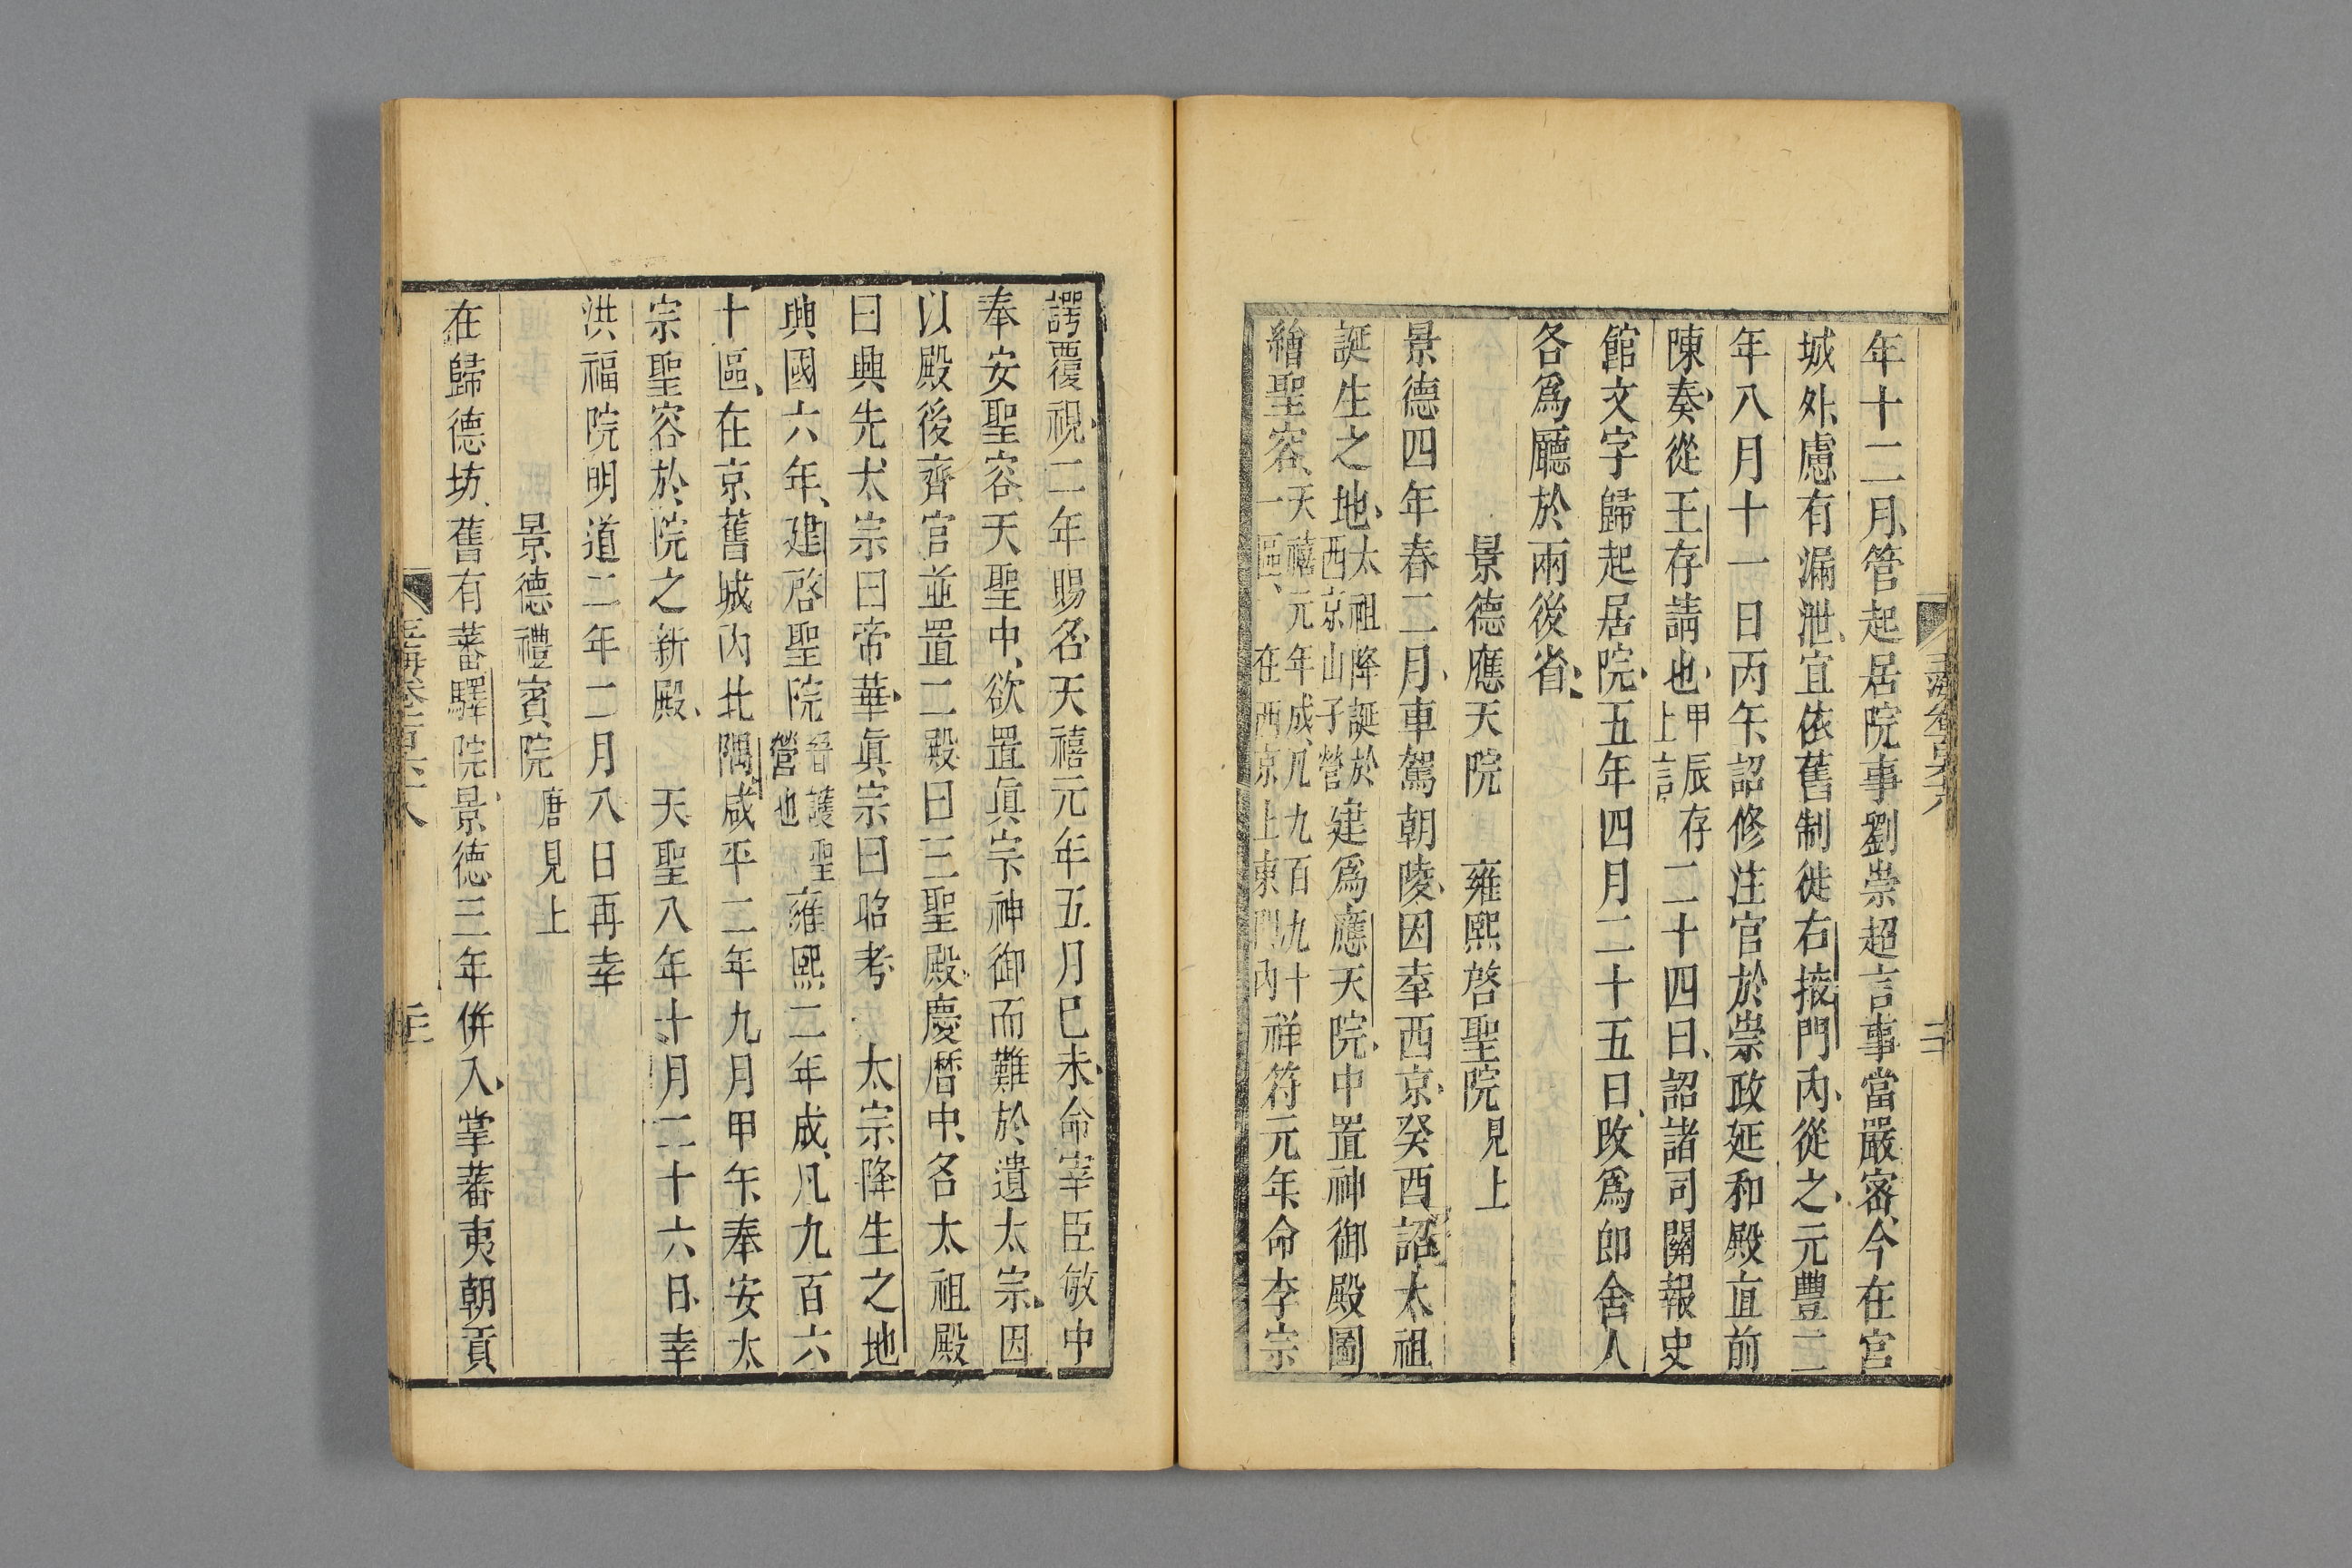 年十二月、管起居院事劉崇超言事當嚴密、今在宮
城外、慮有漏泄、宜依舊制徙右掖門內、從之、元豐二
年八月十一日丙午、詔修注官於崇政延和殿直前
陳奏、從王存請也、甲辰存上言二十四日、詔諸司關報史
館文字歸起居院、五年四月二十五日、改爲郎舍人
各爲廳於兩後省、
景德應天院 雍熙啓聖院見上
景德四年春二月、車駕朝陵、因幸西京、癸酉詔太祖
誕生之地、太祖降誕於西京山子營建爲應天院、中置神御殿圖
繪聖容、天禧元年成、凡九百九十一區、在西京上東門內祥符元年、命李宗
諤覆視、二年賜名天禧元年五月巳未、命宰臣敏中
奉安聖容、天聖中、欲置眞宗神御而難於遺太宗、因
以殿後齊官並置二殿曰三聖殿、慶曆中、名太祖殿
曰興先太宗曰帝華、眞宗曰昭考 太宗降生之地
興國六年、建啓聖院晉護聖營也雍熙二年成、凡九百六
十區、在京舊城內北隅、咸平二年九月甲午、奉安太
宗聖容於院之新殿、 天聖八年十月二十六日、幸
洪福院明道二年二月八日再幸
景德禮賓院唐見上
在歸德坊、舊有蕃驛院、景德三年併入、掌蕃夷朝貢